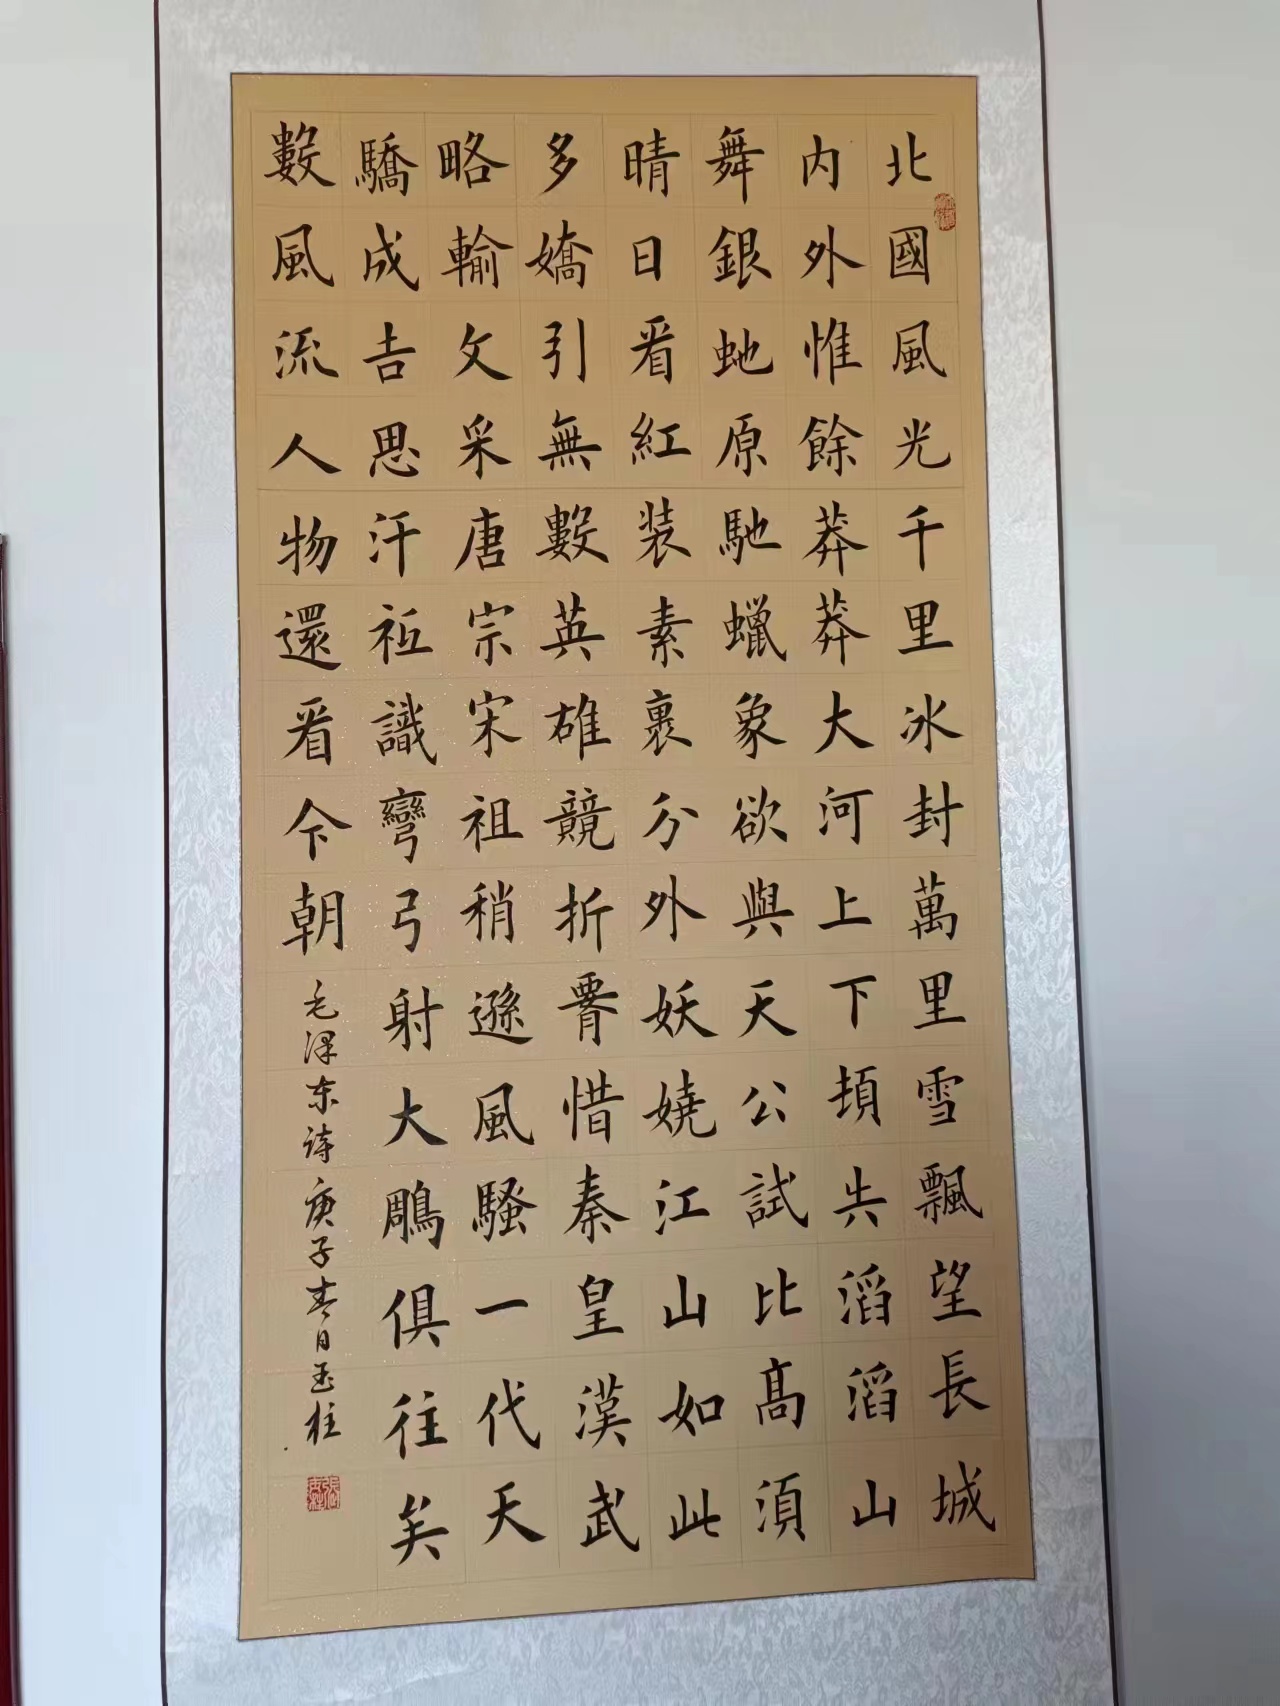 北國風光千里冰封萬里雪飄望長城
内外惟餘莽莽大河上下頓失滔滔山
舞銀虵原馳蠟象欲與天公試比髙須
晴日看紅装素裹分外妖嬈江山如此
多嬌引無數英雄競折腰惜秦皇漢武
略輸文采唐宗宋祖稍遜風騷一代天
驕成吉思汗祇識彎弓射大鵰俱往矣
數風流人物還看今朝
毛泽东诗庚子春日玉柱